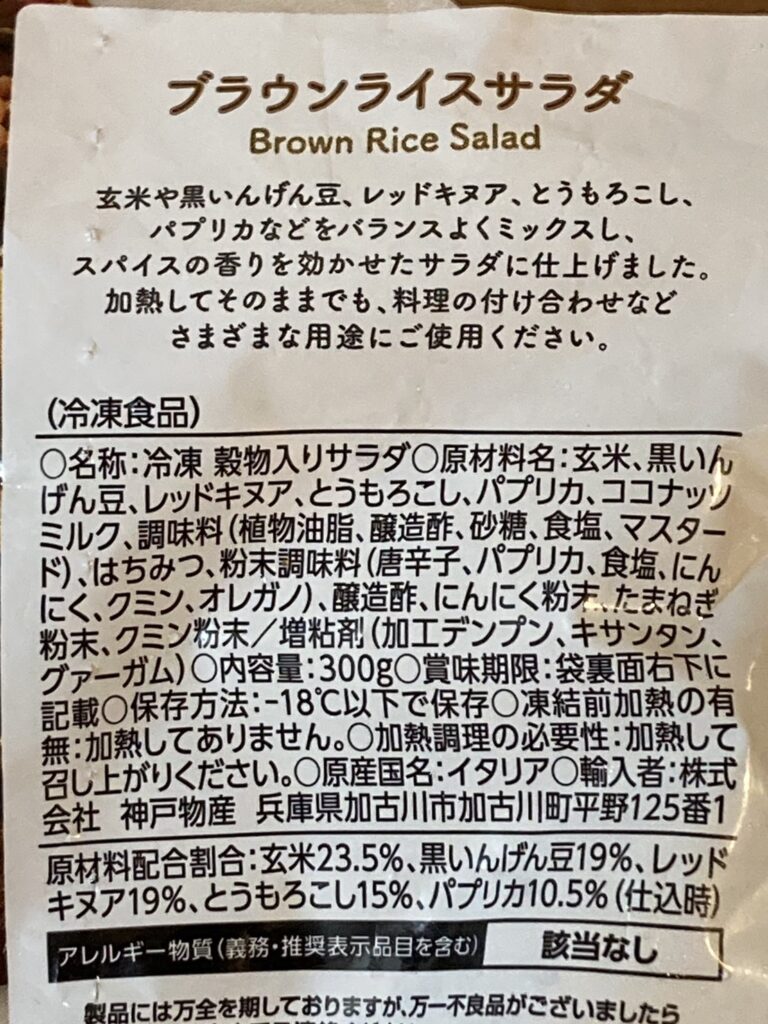 ブラウンライスサラダ
Brown Rice Salad
玄米や黒いんげん豆、レッドキヌア、とうもろこし、
パプリカなどをバランスよくミックスし、
スパイスの香りを効かせたサラダに仕上げました。
加熱してそのままでも、料理の付け合わせなど
さまざまな用途にご使用ください。
(冷凍食品)
○名称:冷凍 穀物入りサラダ○原材料名:玄米、黒いん
げん豆、レッドキヌア、とうもろこし、パプリカ、ココナッツ
ミルク、調味料(植物油脂、醸造酢、砂糖、食塩、マスター
ド)、はちみつ、粉末調味料(唐辛子、パプリカ、食塩、にん
にく、クミン、オレガノ)、醸造酢、にんにく粉末、たまねぎ
粉末、クミン粉末/増粘剤(加工デンプン、キサンタン、
グァーガム)○内容量:300g○賞味期限:袋裏面右下に
記載○保存方法:-18℃以下で保存○凍結前加熱の有
無:加熱してありません。○加熱調理の必要性:加熱して
召し上がりください。○原産国名:イタリア○輸入者:株式
会社 神戸物産 兵庫県加古川市加古川町平野125番1
原材料配合割合:玄米23.5%、黒いんげん豆19%、レッド
キヌア19%、とうもろこし15%、パプリカ10.5%(仕込時)
アレルギー物質(義務・推奨表示品目を含む) 該当なし
製品には万全を期しておりますが、万一不良品がございましたら